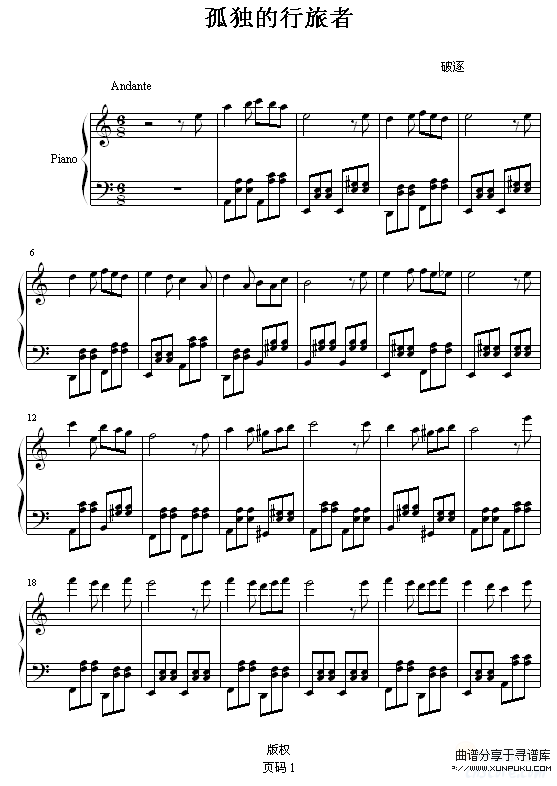 孤独的行旅者
破逐
Andante
Piano
6
8
6
8
6
12
18
版权
页码 1
曲谱分享于寻谱库
://www.XUNPUKU.COM